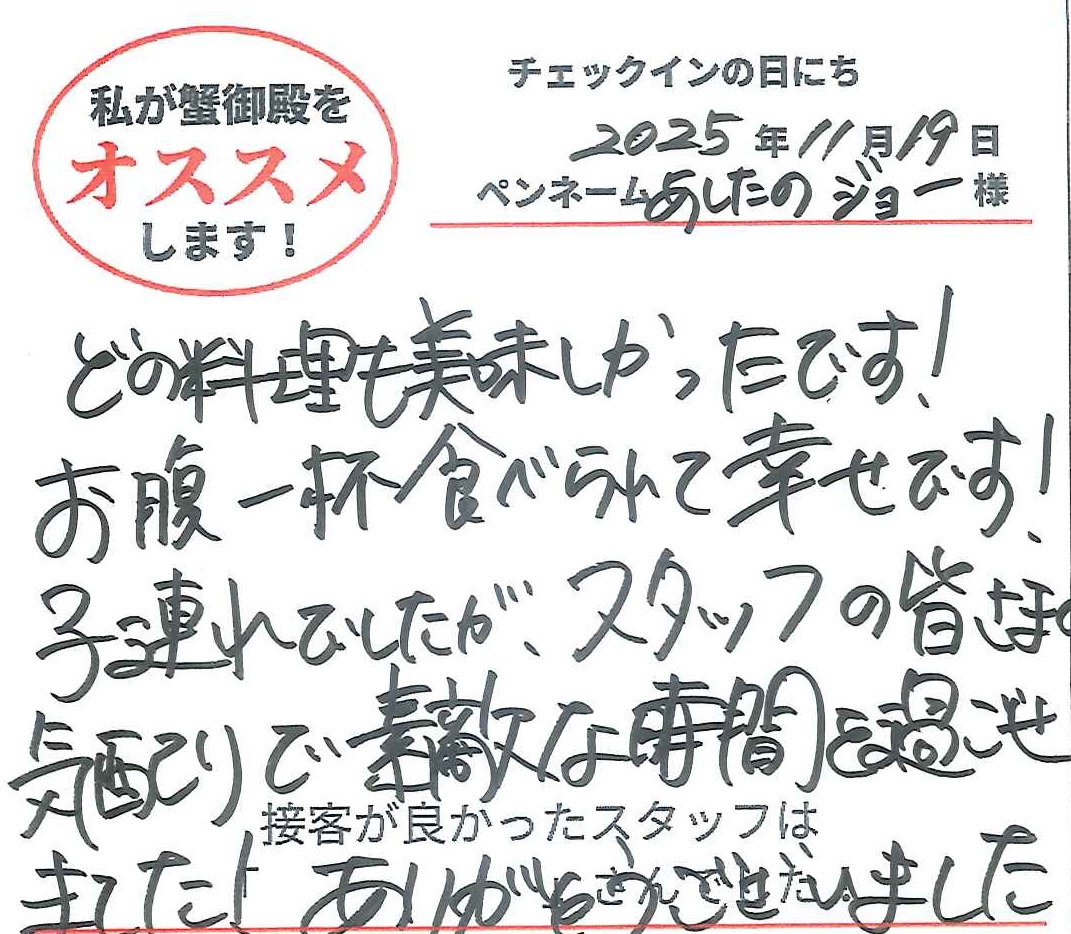 私が蟹御殿を
オススメ
します！
チェックインの日にち
2025年11月19日
ペンネームあしたのジョー様
どの料理も美味しかったです！
お腹一杯食べられて幸せです！
子連れでしたが、スタッフの皆さまの
気配りで素敵な時間を過ごせ
接客が良かったスタッフは
ました！ありがとうございました
さんでした。